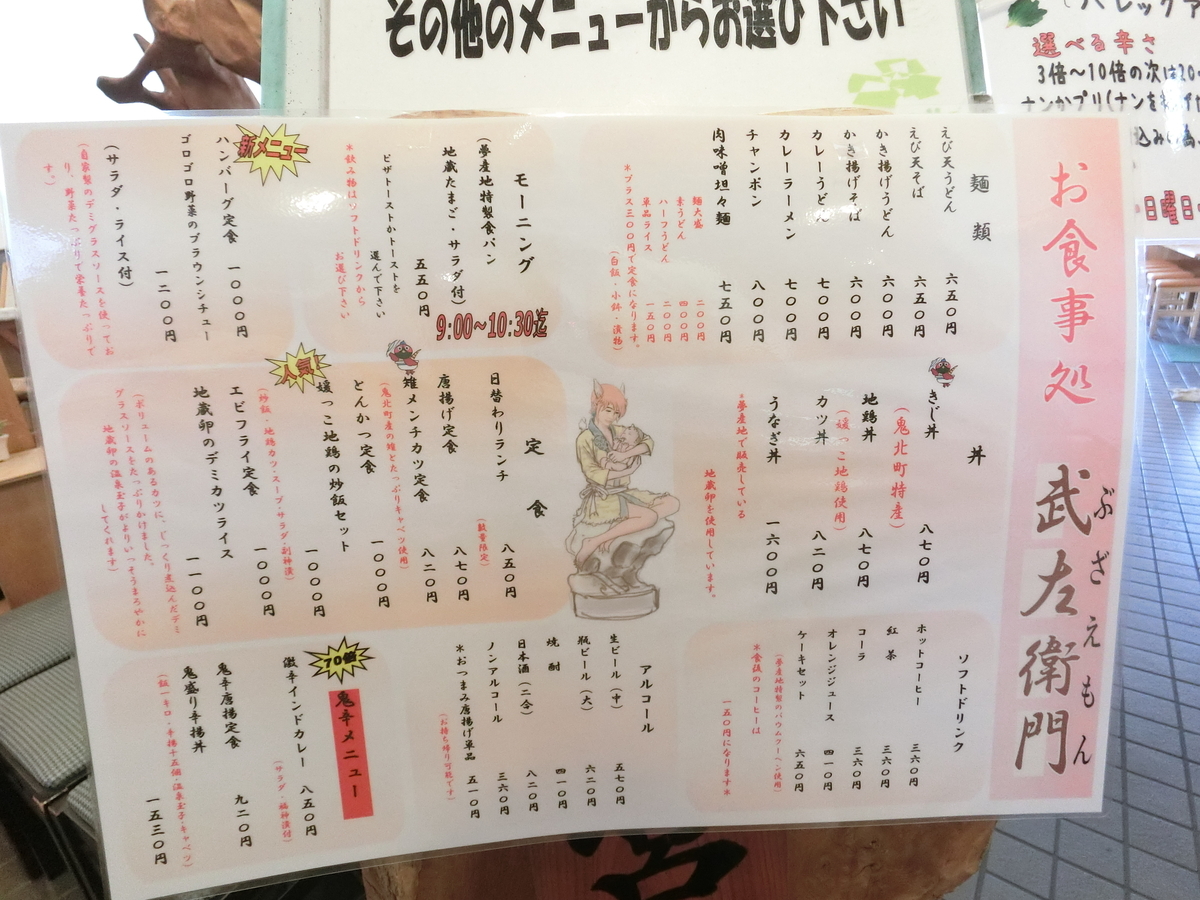 その他のメニューからお選び下さい
選べる辛さ
3倍〜10倍の次は20
日曜日
お食事処
武左衛門
ぶざえもん
麺類
えび天うどん 六五〇円
えび天そば 六五〇円
かき揚げうどん 六〇〇円
かき揚げそば 六〇〇円
カレーうどん 七〇〇円
カレーラーメン 七〇〇円
チャンポン 八〇〇円
肉味噌坦々麺 七五〇円
麺大盛 二〇〇円
素うどん 四〇〇円
ハーフうどん 二〇〇円
単品ライス 一五〇円
*プラス三〇〇円で定食になります。
(白飯・小鉢・漬物)
丼
きじ丼 八七〇円
(鬼北町特産)
地鶏丼 八七〇円
(媛っこ地鶏使用)
カツ丼 八二〇円
うなぎ丼 一六〇〇円
*夢産地で販売している
地蔵卵を使用しています。
ソフトドリンク
ホットコーヒー 三六〇円
紅茶 三六〇円
コーラ 三六〇円
オレンジジュース 四一〇円
ケーキセット 六五〇円
(夢産地特製のバウムクーヘン使用)
*食後のコーヒーは
一五〇円になります*
モーニング
9:00〜10:30迄
(夢産地特製食パン
地蔵たまご・サラダ付)
五五〇円
ピザトーストかトーストを
選んで下さい
*飲み物はソフトドリンクから
お選び下さい
新メニュー
ハンバーグ定食 一〇〇〇円
ゴロゴロ野菜のブラウンシチュー
一二〇〇円
(サラダ・ライス付)
(自家製のデミグラスソースを使ってお
り、野菜たっぷりで栄養たっぷりで
す。)
定食
日替わりランチ 八五〇円
(数量限定)
唐揚げ定食 八七〇円
雉メンチカツ定食 八二〇円
(鬼北町産の雉とたっぷりキャベツ使用)
とんかつ定食 一〇〇〇円
人気!
媛っこ地鶏の炒飯セット
一〇〇〇円
(炒飯・地鶏カツ・スープ・サラダ・副神漬)
エビフライ定食 一〇〇〇円
地蔵卵のデミカツライス
一一〇〇円
(ボリュームのあるカツに、じっくり煮込んだデミ
グラスソースをたっぷりかけました。
地蔵卵の温泉玉子がよりいっそうまろやかに
してくれます)
アルコール
生ビール(中) 五七〇円
瓶ビール(大) 六二〇円
焼酎 四一〇円
日本酒(二合) 八二〇円
ノンアルコール 三六〇円
*おつまみ唐揚げ単品 五一〇円
(お持ち帰り可能です)
70倍
鬼辛メニュー
激辛インドカレー 八五〇円
(サラダ・福神漬付)
鬼辛唐揚定食 九二〇円
鬼盛り辛揚丼
一五三〇円
(飯一キロ・辛揚十五個・温泉玉子・キャベツ)